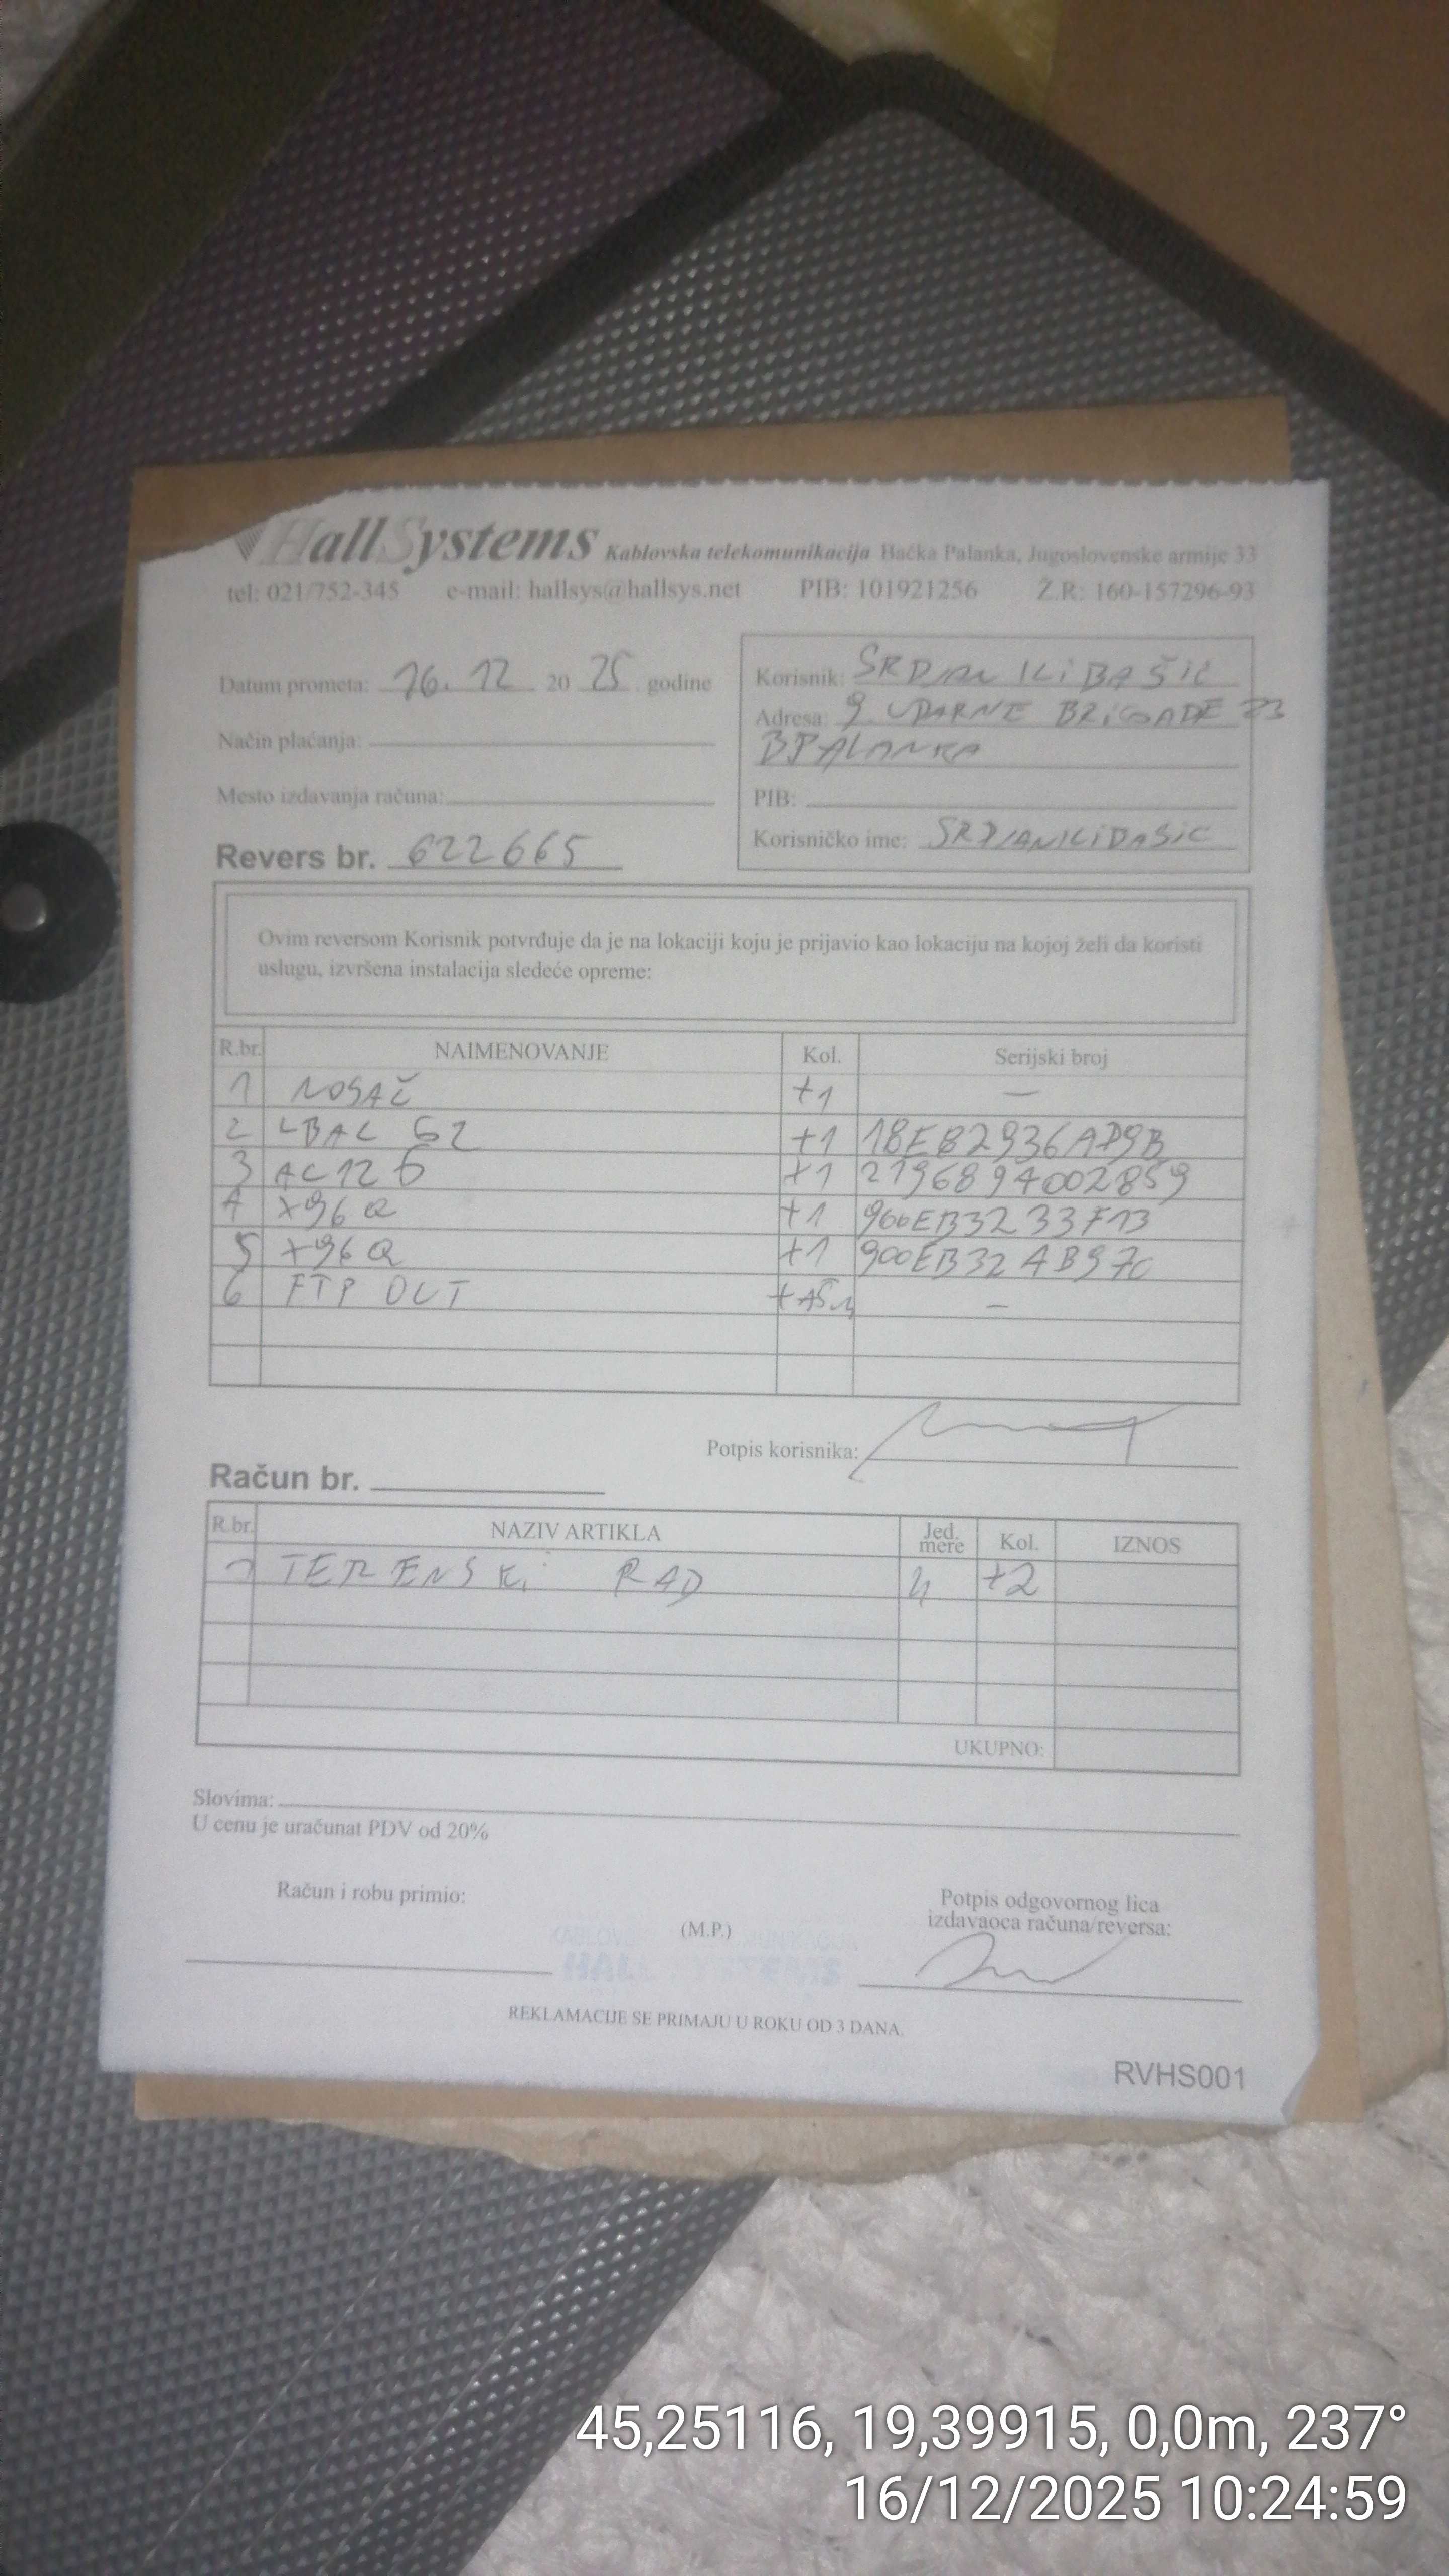 HallSystems Kablovska telekomunikacija Bačka Palanka, Jugoslovenske armije 33
tel: 021/752-345 e-mail: hallsys@hallsys.net PIB: 101921256 Ž.R: 160-157296-93
Datum prometa: 16.12 2025 godine
Način plaćanja:
Mesto izdavanja računa:
Revers br. 622665
Korisnik: SRDJAN ILIBAŠIĆ
Adresa: 9. UDARNE BRIGADE 23
BPALANKA
PIB:
Korisničko ime: SRDJANILIBASIC
Ovim reversom Korisnik potvrđuje da je na lokaciji koju je prijavio kao lokaciju na kojoj želi da koristi
uslugu, izvršena instalacija sledeće opreme:
R.br. NAIMENOVANJE Kol. Serijski broj
1 NOSAČ +1 —
2 LBAC G2 +1 18E82936AD9B
3 AC12 G +1 2196894002859
4 X96Q +1 900EB3233F13
5 X96Q +1 900EB32AB97C
6 FTP OUT —
Potpis korisnika:
Račun br.
R.br. NAZIV ARTIKLA Jed. mere Kol. IZNOS
1 TERENSKi RAD +2
UKUPNO:
Slovima:
U cenu je uračunat PDV od 20%
Račun i robu primio:
(M.P.)
Potpis odgovornog lica
izdavaoca računa/reversa:
HALL SYSTEMS
REKLAMACIJE SE PRIMAJU U ROKU OD 3 DANA.
RVHS001
45,25116, 19,39915, 0,0m, 237°
16/12/2025 10:24:59